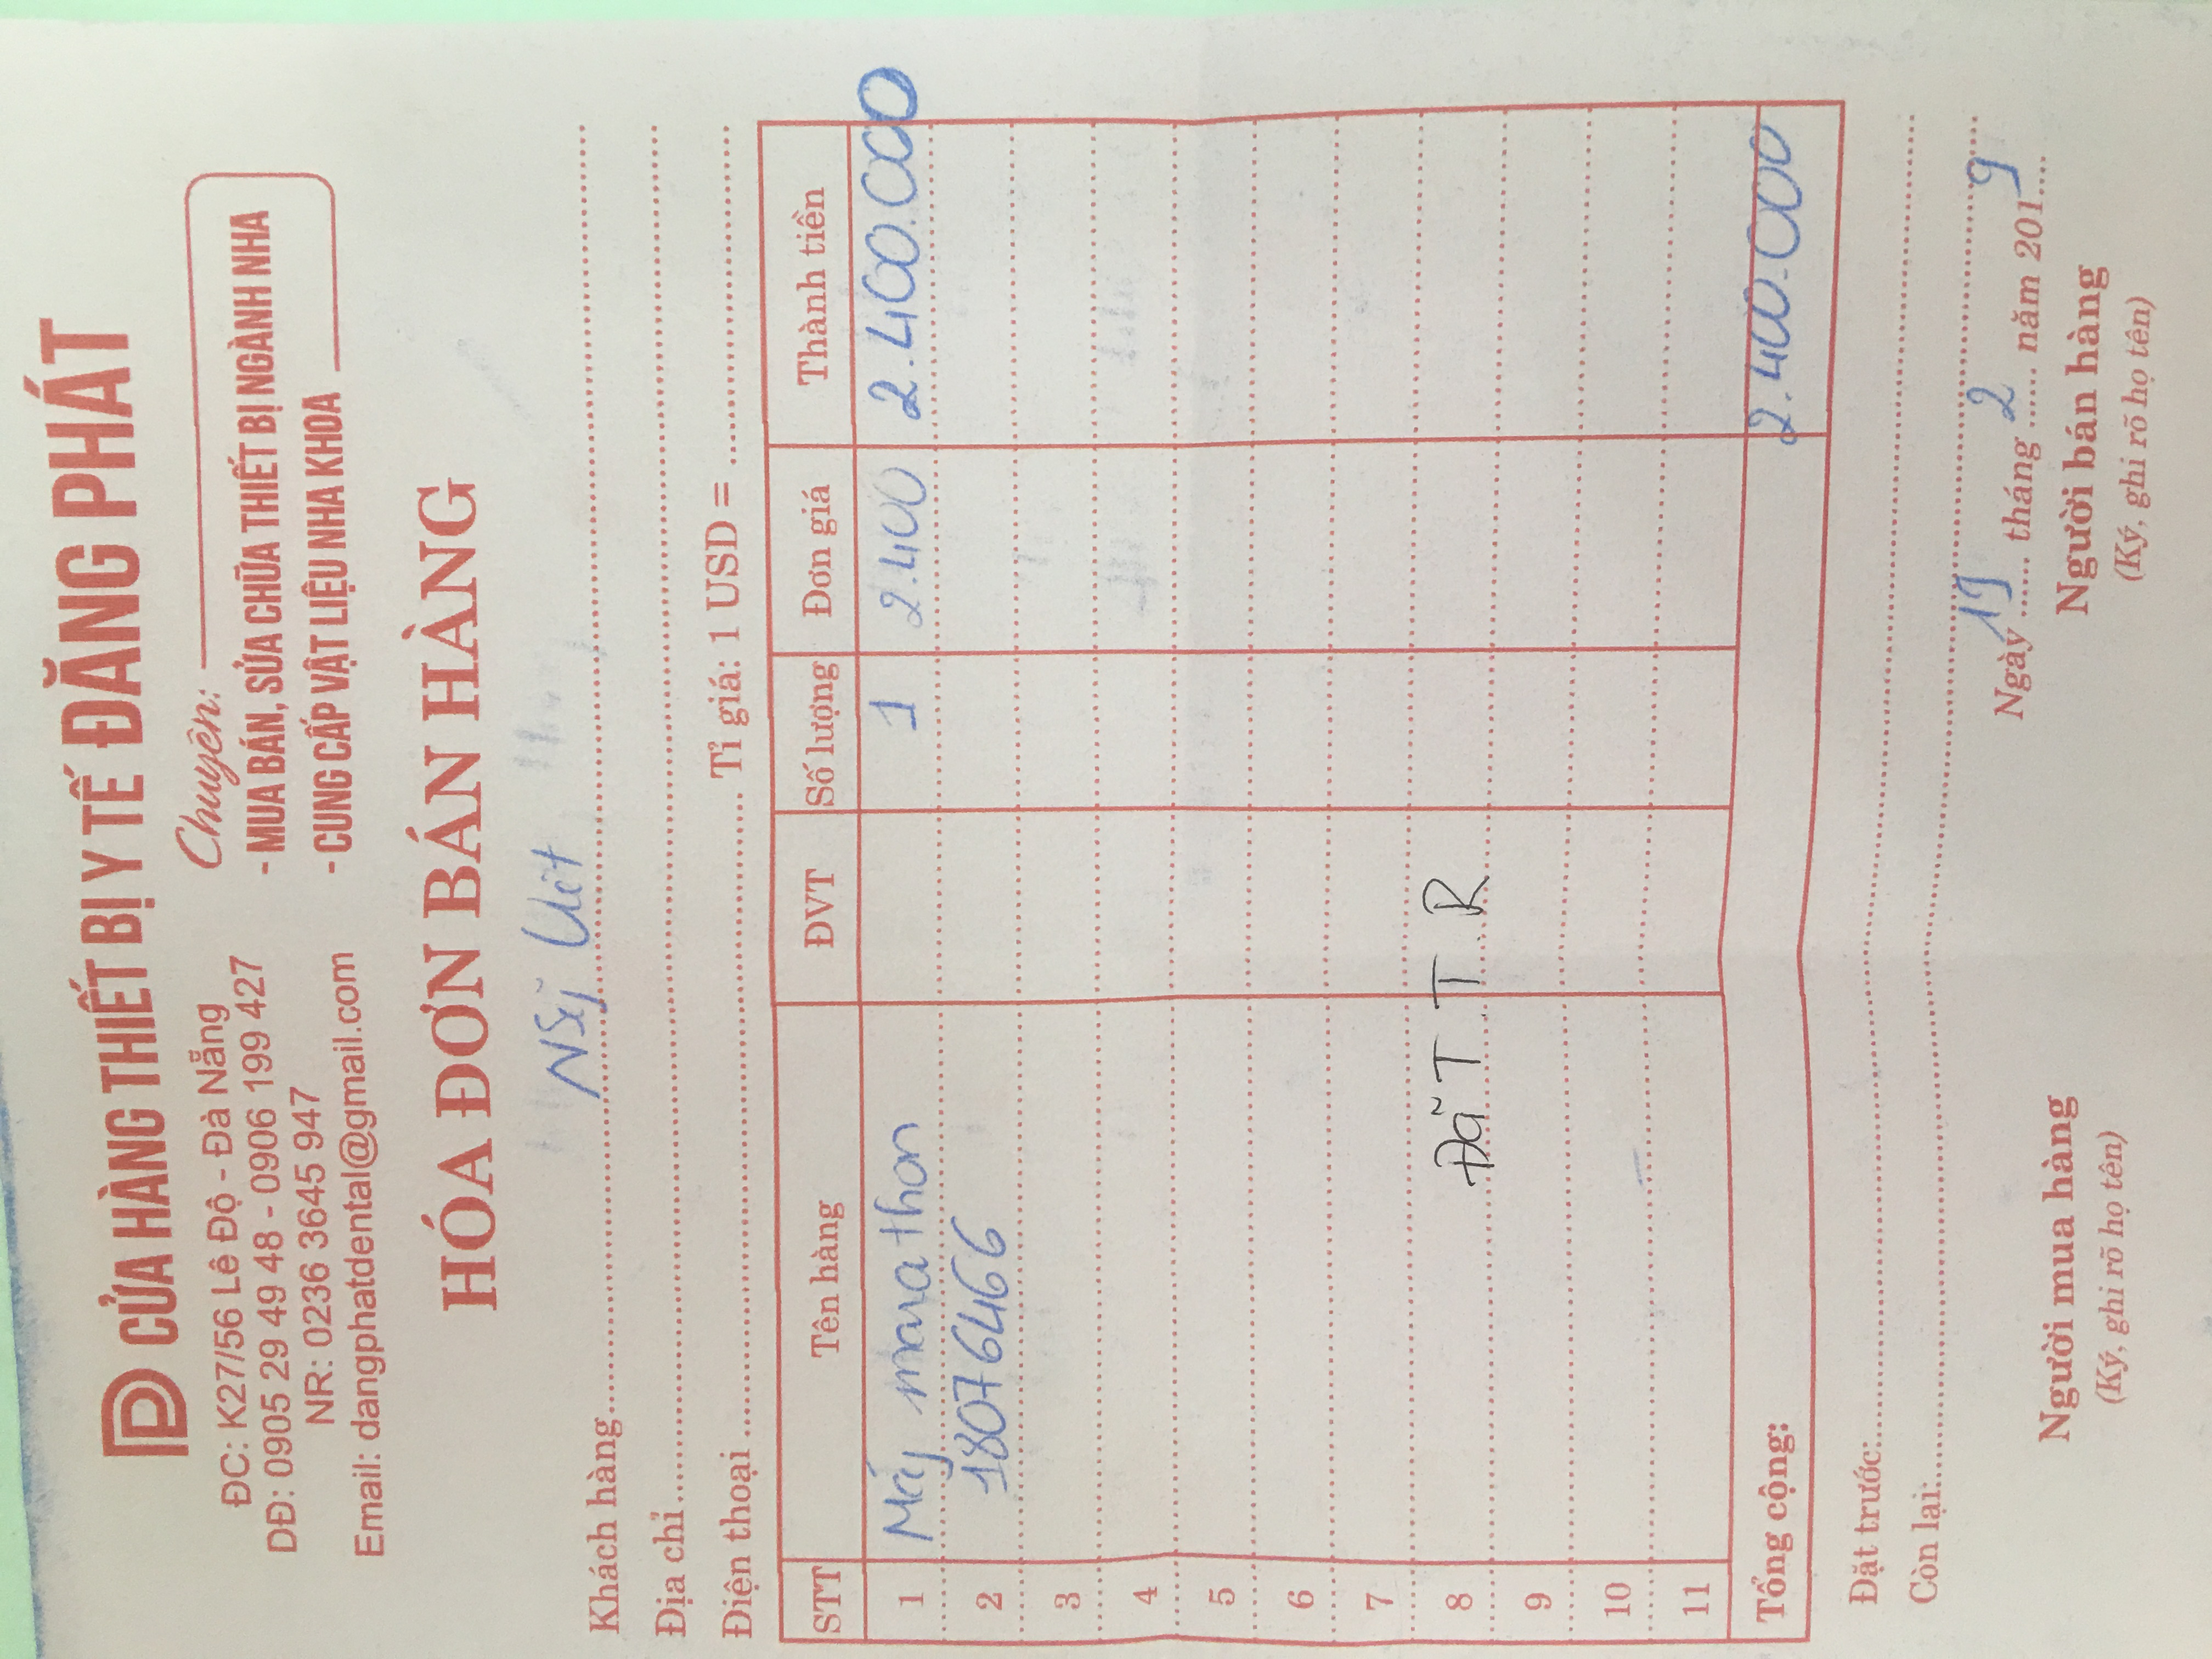 CỬA HÀNG THIẾT BỊ Y TẾ ĐĂNG PHÁT
ĐC: K27/56 Lê Độ - Đà Nẵng
DĐ: 0905 29 49 48 - 0906 199 427
NR: 0236 3645 947
Email: dangphatdental@gmail.com
Chuyên:
- MUA BÁN, SỬA CHỮA THIẾT BỊ NGÀNH NHA
- CUNG CẤP VẬT LIỆU NHA KHOA
HÓA ĐƠN BÁN HÀNG
Khách hàng
Địa chỉ
Điện thoại Tỉ giá: 1 USD =
STT Tên hàng ĐVT Số lượng Đơn giá Thành tiền
1 Máy marathon 1 2.400 2.400.000
2 18076466
3
4
5
6
7
8 Đã T.T.R
9
10
11
Tổng cộng: 2.400.000
Đặt trước:
Còn lại:
Ngày 19 tháng 2 năm 2019
Người mua hàng Người bán hàng
(Ký, ghi rõ họ tên) (Ký, ghi rõ họ tên)